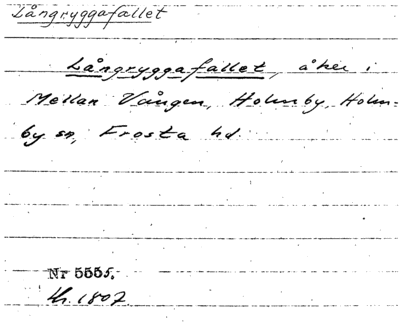 Långryggafallet
Långryggafallet, åker i
Mellan Vången, Holmby, Holm=
by sn, Frosta hd.
Nr 5555.
1807.